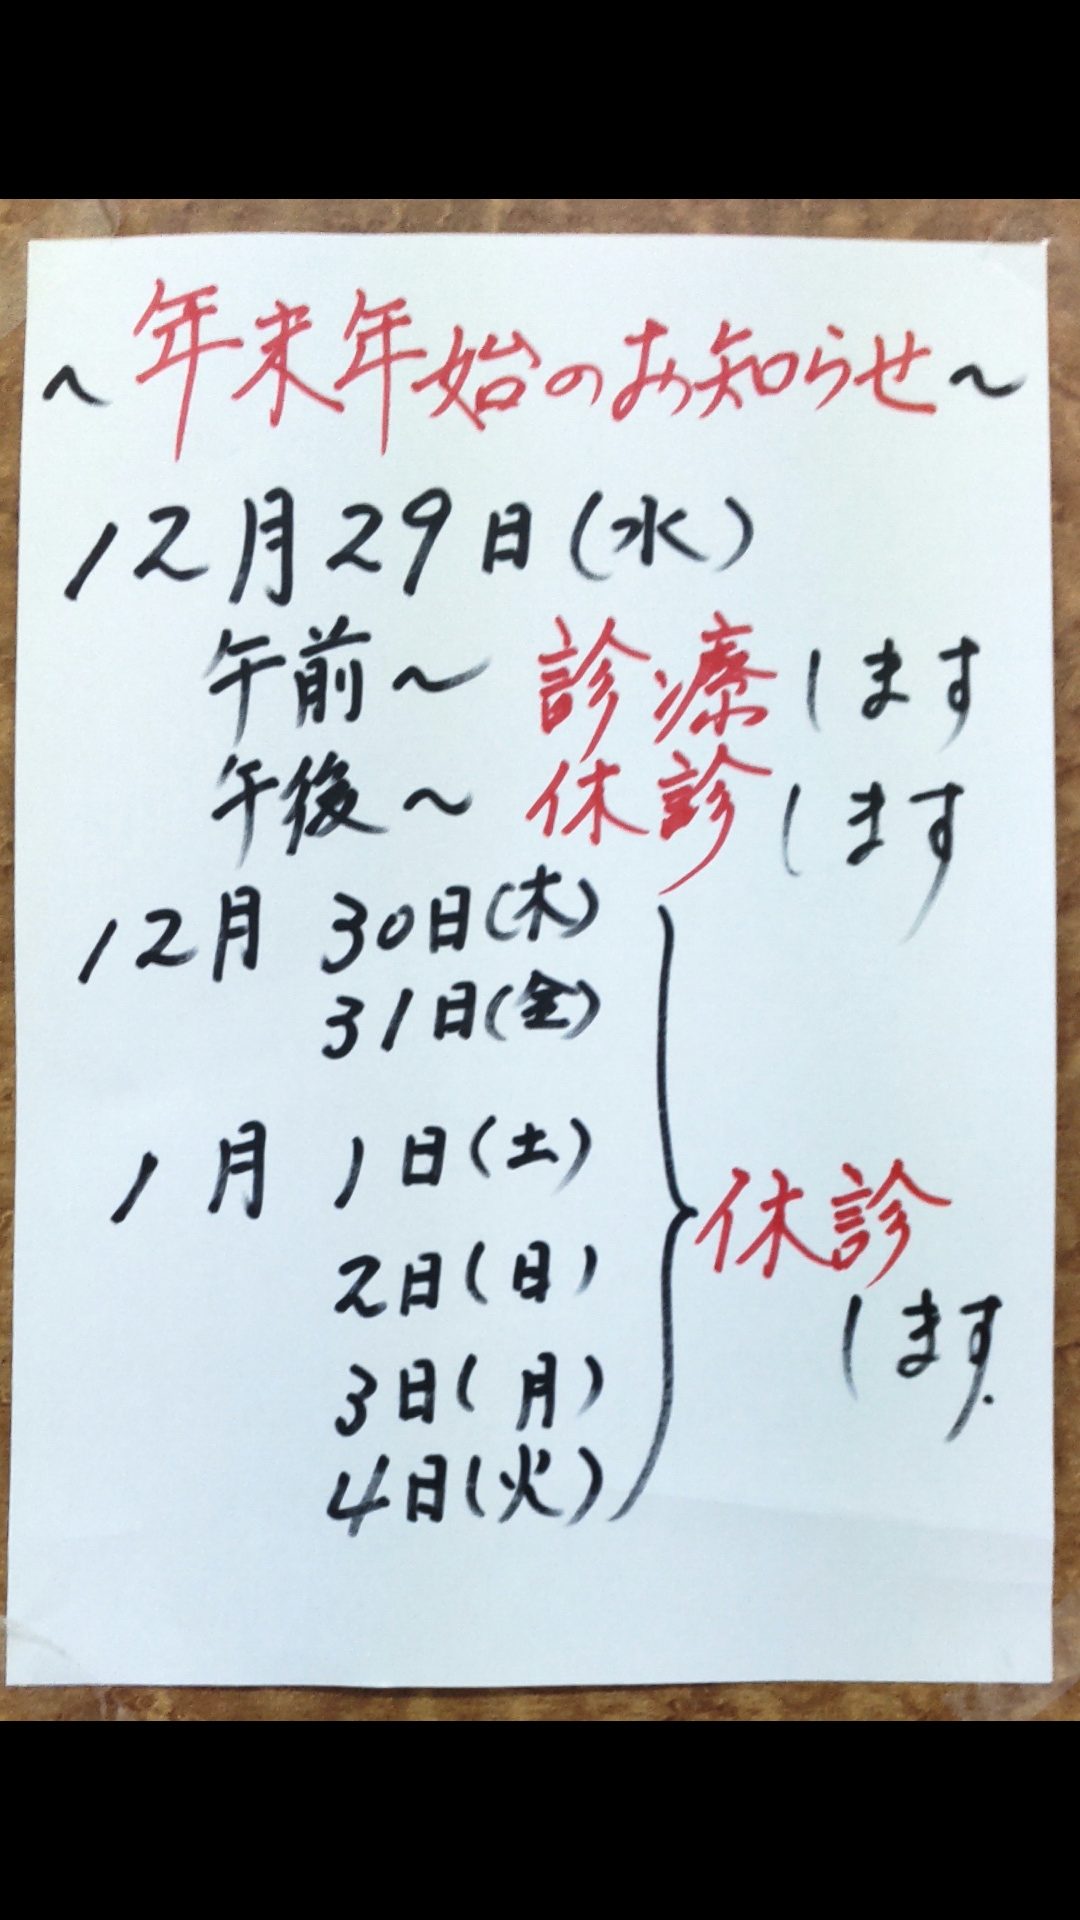 ~年末年始のお知らせ~
12月29日(水)
午前~診療します
午後~休診します
12月 30日(木)
31日(金)
1月 1日(土)
2日(日)
3日(月)
4日(火)
休診
します.